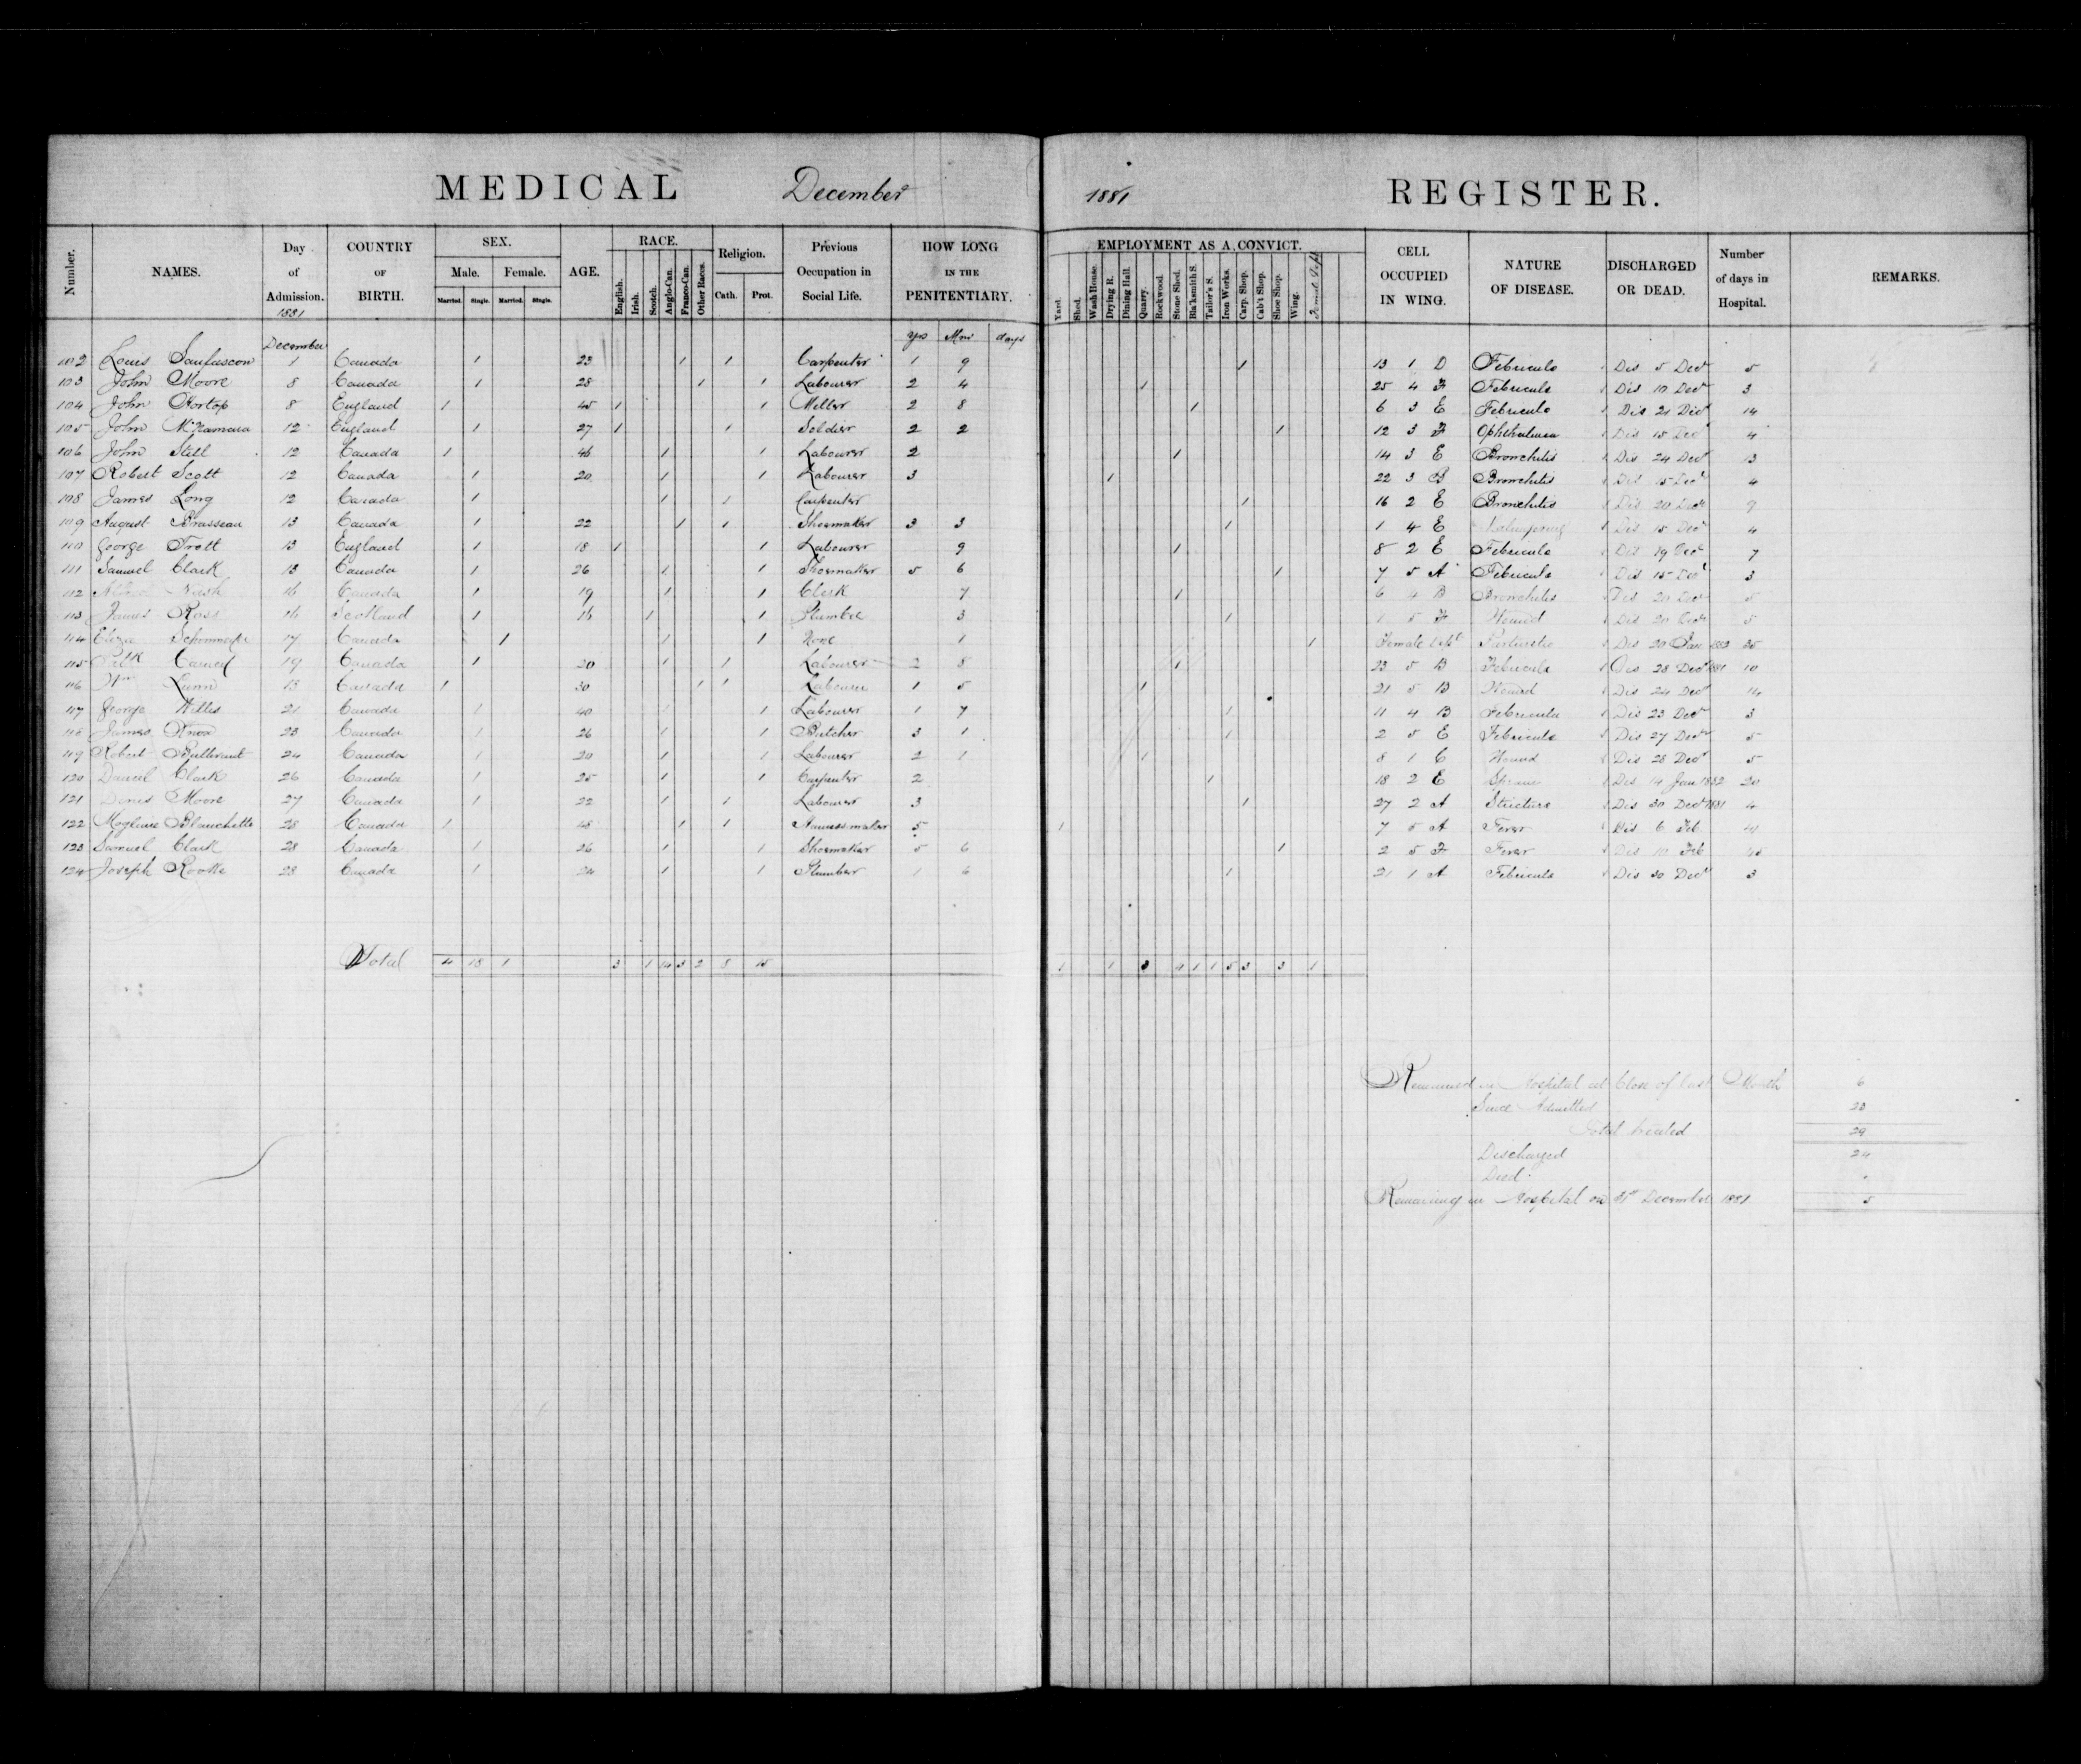 MEDICAL December 1881 REGISTER.
Number. NAMES. Day of Admission. 1881 COUNTRY OF BIRTH. SEX. Male. Female. Married. Single. Married. Single. AGE. RACE. English. Irish. Scotch. Anglo-Can. Franco-Can. Other Races. Religion. Cath. Prot. Previous Occupation in Social Life. HOW LONG IN THE PENITENTIARY. EMPLOYMENT AS A CONVICT. Yard. Shed. Wash House. Drying R. Dining Hall. Quarry. Rockwood. Stone Shed. Bla'ksmith S. Tailor's S. Iron Works. Carp. Shop. Cab't Shop. Shoe Shop. Wing. Female Dept CELL OCCUPIED IN WING. NATURE OF DISEASE. DISCHARGED OR DEAD. Number of days in Hospital. REMARKS.
December yrs Mos days
102 Louis Sanfascon 1 Canada 1 23 1 1 Carpenter 1 9 1 13 1 D Febricula 1 Dis 5 Decr 5
103 John Moore 8 Canada 1 28 1 1 Labourer 2 4 1 25 4 F Febricula 1 Dis 10 Decr 3
104 John Hortop 8 England 1 45 1 1 Miller 2 8 1 6 3 E Febricula 1 Dis 21 Decr 14
105 John McNamara 12 England 1 27 1 1 Soldier 2 2 1 12 3 F Ophthalmia 1 Dis 15 Decr 4
106 John Still 12 Canada 1 46 1 1 Labourer 2 1 14 3 E Bronchitis 1 Dis 24 Decr 13
107 Robert Scott 12 Canada 1 20 1 1 Labourer 3 1 22 3 B Bronchitis 1 Dis 15 Decr 4
108 James Long 12 Canada 1 1 1 Carpenter 1 16 2 E Bronchitis 1 Dis 20 Decr 9
109 August Brasseau 13 Canada 1 22 1 1 Shoemaker 3 3 1 1 4 E 1 Dis 15 Decr 4
110 George Trott 13 England 1 18 1 1 Labourer 9 1 8 2 E Febricula 1 Dis 19 Decr 7
111 Samuel Clark 13 Canada 1 26 1 1 Shoemaker 5 6 1 7 5 A Febricula 1 Dis 15 Decr 3
112 Nash 16 Canada 1 19 1 1 Clerk 7 1 6 4 B Bronchitis Dis 20 Decr 5
113 James Ross 16 Scotland 1 16 1 1 Plumber 3 1 1 5 F Wound 1 Dis 20 Decr 5
114 Eliza 17 Canada 1 1 1 None 1 1 Female Dept 1 Dis 20 Jan 1882 25
115 Patk 19 Canada 1 20 1 1 Labourer 2 8 1 23 5 B Febricula 1 Dis 28 Decr 1881 10
116 Wm Lunn 13 Canada 1 30 1 1 Labourer 1 5 1 21 5 B Wound 1 Dis 24 Decr 14
117 George Willis 21 Canada 1 40 1 1 Labourer 1 7 1 11 4 B Febricula 1 Dis 23 Decr 3
118 James Knox 23 Canada 1 26 1 1 Butcher 3 1 1 2 5 E Febricula 1 Dis 27 Decr 5
119 Robert Bullivant 24 Canada 1 20 1 1 Labourer 2 1 1 8 1 C Wound 1 Dis 28 Decr 5
120 Daniel Clark 26 Canada 1 25 1 1 Carpenter 2 1 18 2 E Sprain 1 Dis 14 Jan 1882 20
121 Denis Moore 27 Canada 1 22 1 1 Labourer 3 1 27 2 A Stricture 1 Dis 30 Decr 1881 4
122 Magloire Blanchette 28 Canada 1 48 1 1 Harness maker 5 1 7 5 A Fever 1 Dis 6 Feb 41
123 Samuel Clark 28 Canada 1 26 1 1 Shoemaker 5 6 1 2 5 F Fever 1 Dis 10 Feb 45
124 Joseph Rooke 28 Canada 1 24 1 1 Plumber 1 6 1 21 1 A Febricula 1 Dis 30 Decr 3
Total 4 18 1 3 1 14 3 2 8 15 1 1 3 4 1 1 5 3 3 1
Remained in Hospital at Close of last Month 6
Since Admitted 23
Total treated 29
Discharged 24
Died "
Remaining in Hospital on 31st December 1881 5